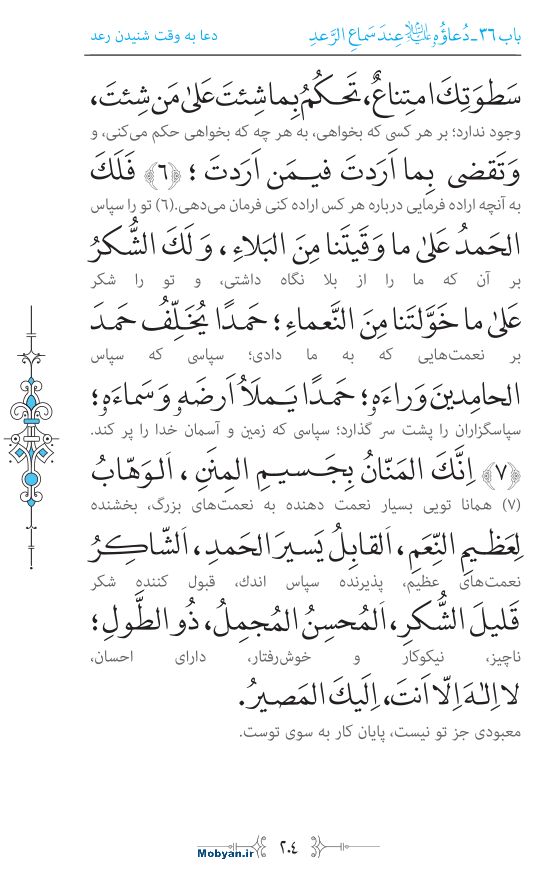 باب ۳۶-دُعاؤُهُ عَلَيْهِ السَّلامُ عِندَ سَماعِ الرَّعدِ
دعا به وقت شنیدن رعد
سَطوَتِكَ امتِناعٌ، تَحكُمُ بِما شِئتَ عَلىٰ مَن شِئتَ،
وجود ندارد؛ بر هر کسی که بخواهی، به هر چه که بخواهی حکم می‌کنی، و
وَتَقضی بِما اَرَدتَ فیـمَن اَرَدتَ ؛ ﴿۶﴾ فَلَكَ
به آنچه اراده فرمایی درباره هر کس اراده کنی فرمان می‌دهی.(۶) تو را سپاس
الحَمدُ عَلىٰ ما وَقَيتَنا مِنَ البَلاءِ، وَ لَكَ الشُّكرُ
بر آن که ما را از بلا نگاه داشتی، و تو را شکر
عَلىٰ ما خَوَّلتَنا مِنَ النَّعماءِ؛ حَمدًا يُخَلِّفُ حَمدَ
بر نعمت‌هایی که به ما دادی؛ سپاسی که سپاس
الحامِدينَ وَراءَهُ؛ حَمدًا يَـملَأُ اَرضَهُ وَ سَماءَهُ؛
سپاسگزاران را پشت سر گذارد؛ سپاسی که زمین و آسمان خدا را پر کند.
﴿۷﴾ اِنَّكَ المَنّانُ بِجَـسيـمِ المِنَنِ ، اَلوَهّابُ
(۷) همانا تویی بسیار نعمت دهنده به نعمت‌های بزرگ، بخشنده
لِعَظـيمِ النِّعَمِ، اَلقابِلُ يَسيرَ الحَمدِ، اَلشّاكِـرُ
نعمت‌های عظیم، پذیرنده سپاس اندك، قبول کننده شکر
قَليلَ الشُّكرِ، اَلمُحسِنُ المُجمِلُ، ذُو الطَّولِ؛
ناچیز، نیکوکار و خوش‌رفتار، دارای احسان،
لا اِلـٰهَ اِلّا اَنتَ، اِلَيكَ المَصيرُ.
معبودی جز تو نیست، پایان کار به سوی توست.
۲۰۴
Mobyan.ir